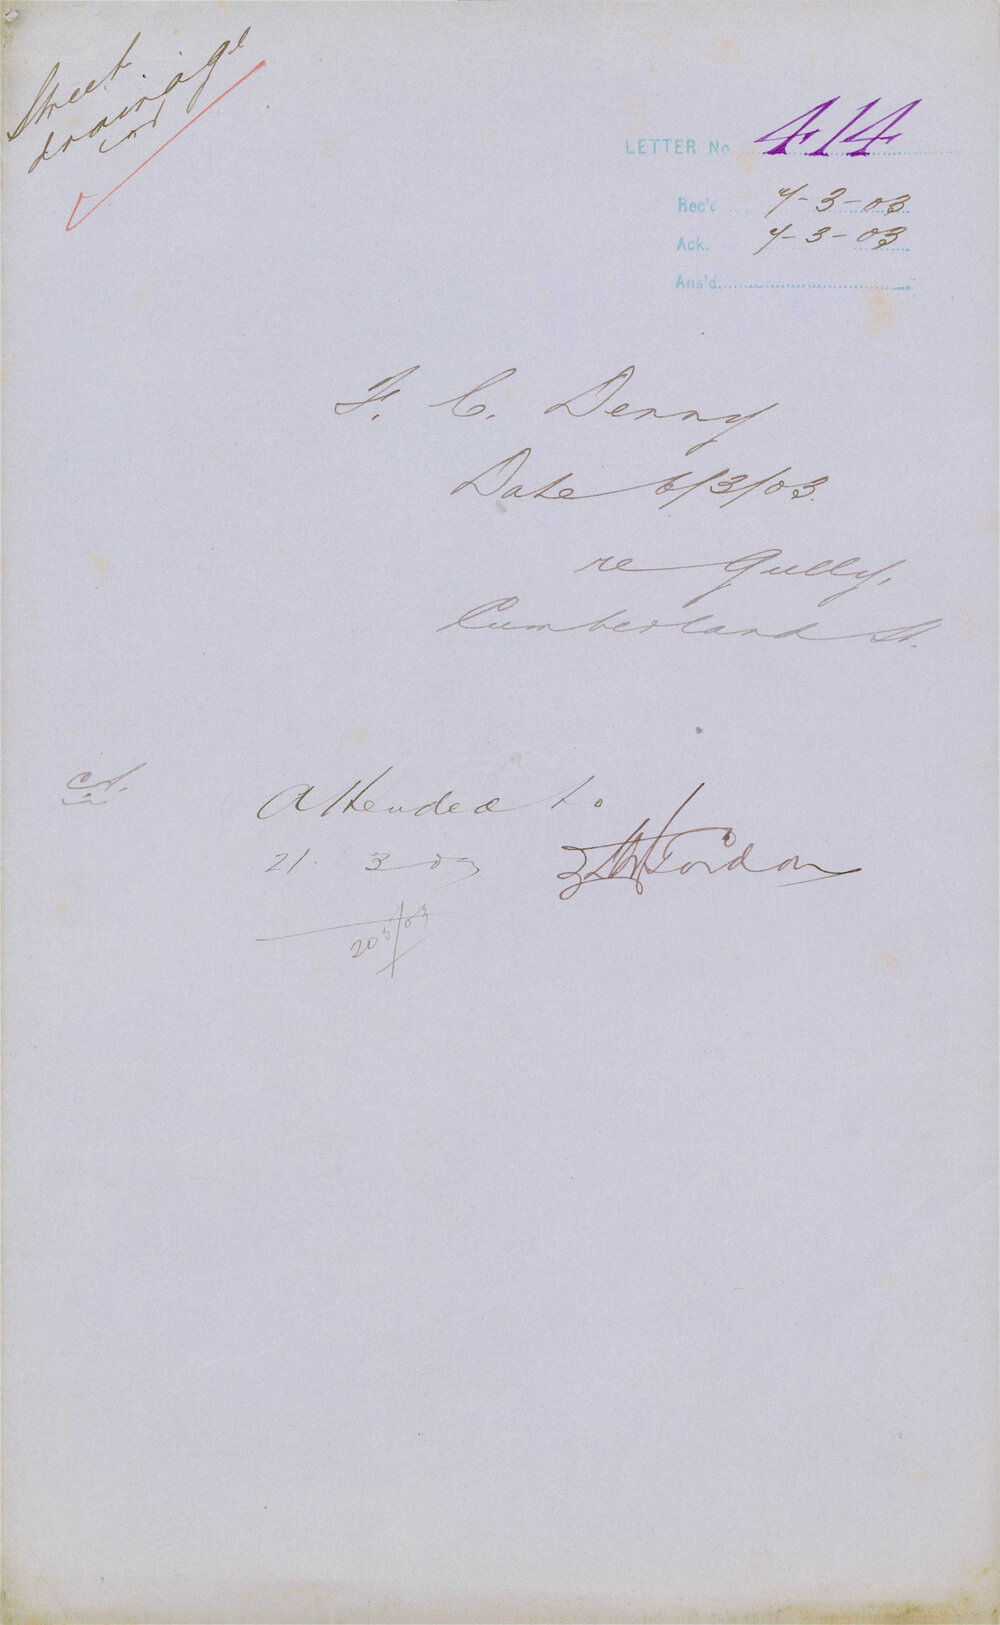 Street
drainage
LETTER No. 414
Rec'd 7-3-03
Ack. 7-3-03
Ans'd.
F. C. Denny
Date 6/3/03.
re Gully,
Cumberland St.
Attended to
21 3 03
Gordon
20/5/03